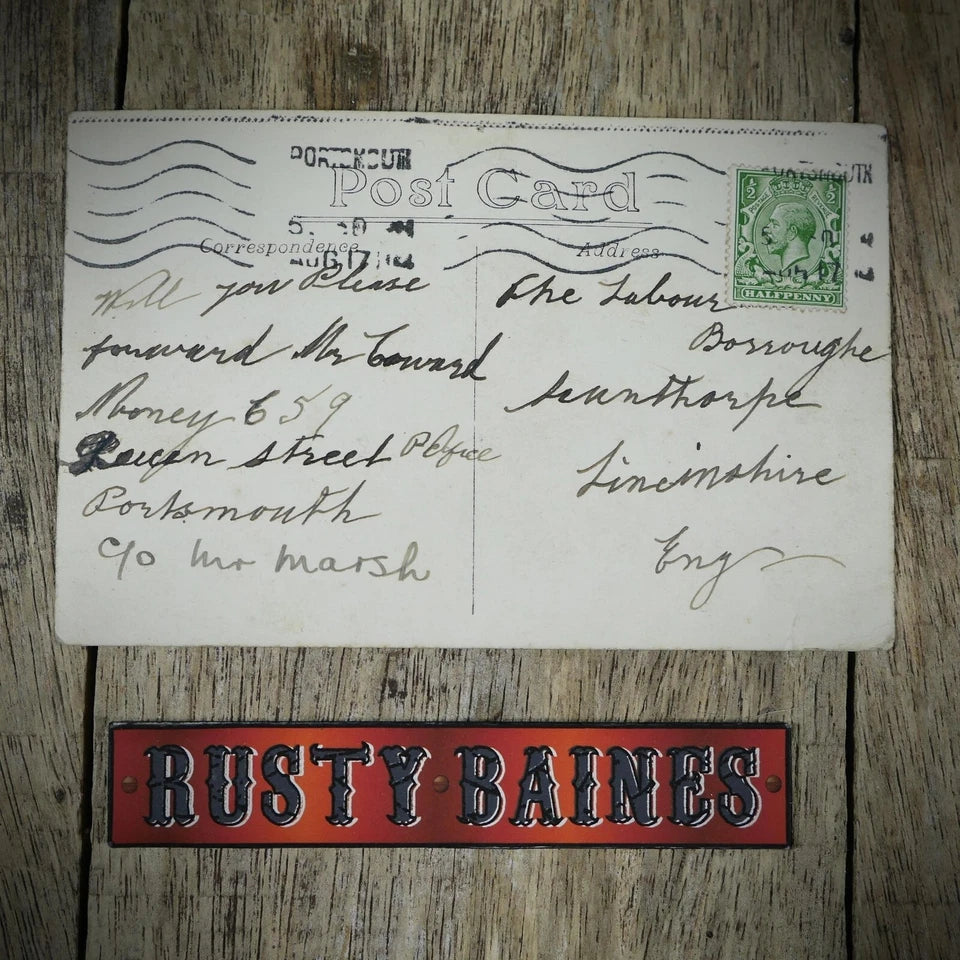 PORTSMOUTH
Post Card
5. 30 AM
AUG 17
Correspondence
Address
HALFPENNY
Will you Please
forward Mr Coward
Money 659
Queen street P Office
Portsmouth
c/o Mr Marsh
The Labour
Borroughe
Scunthorpe
Lincinshire
Eng
RUSTY BAINES